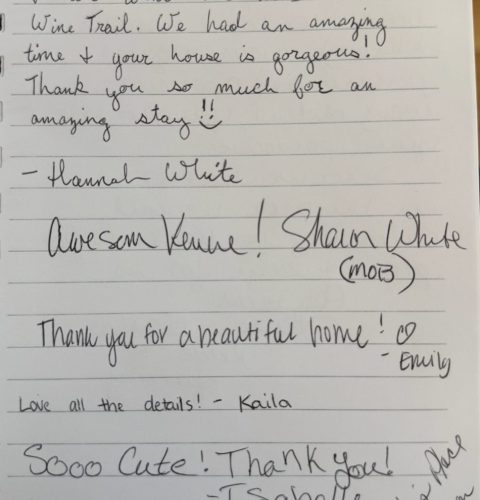 Wine Trail. We had an amazing
time & your house is gorgeous!
Thank you so much for an
amazing stay!!
- Hannah White
Awesom Venue! Sharon White
(MOB)
Thank you for a beautiful home! ♡
- Emily
Love all the details! - Kaila
Sooo Cute! Thank you!